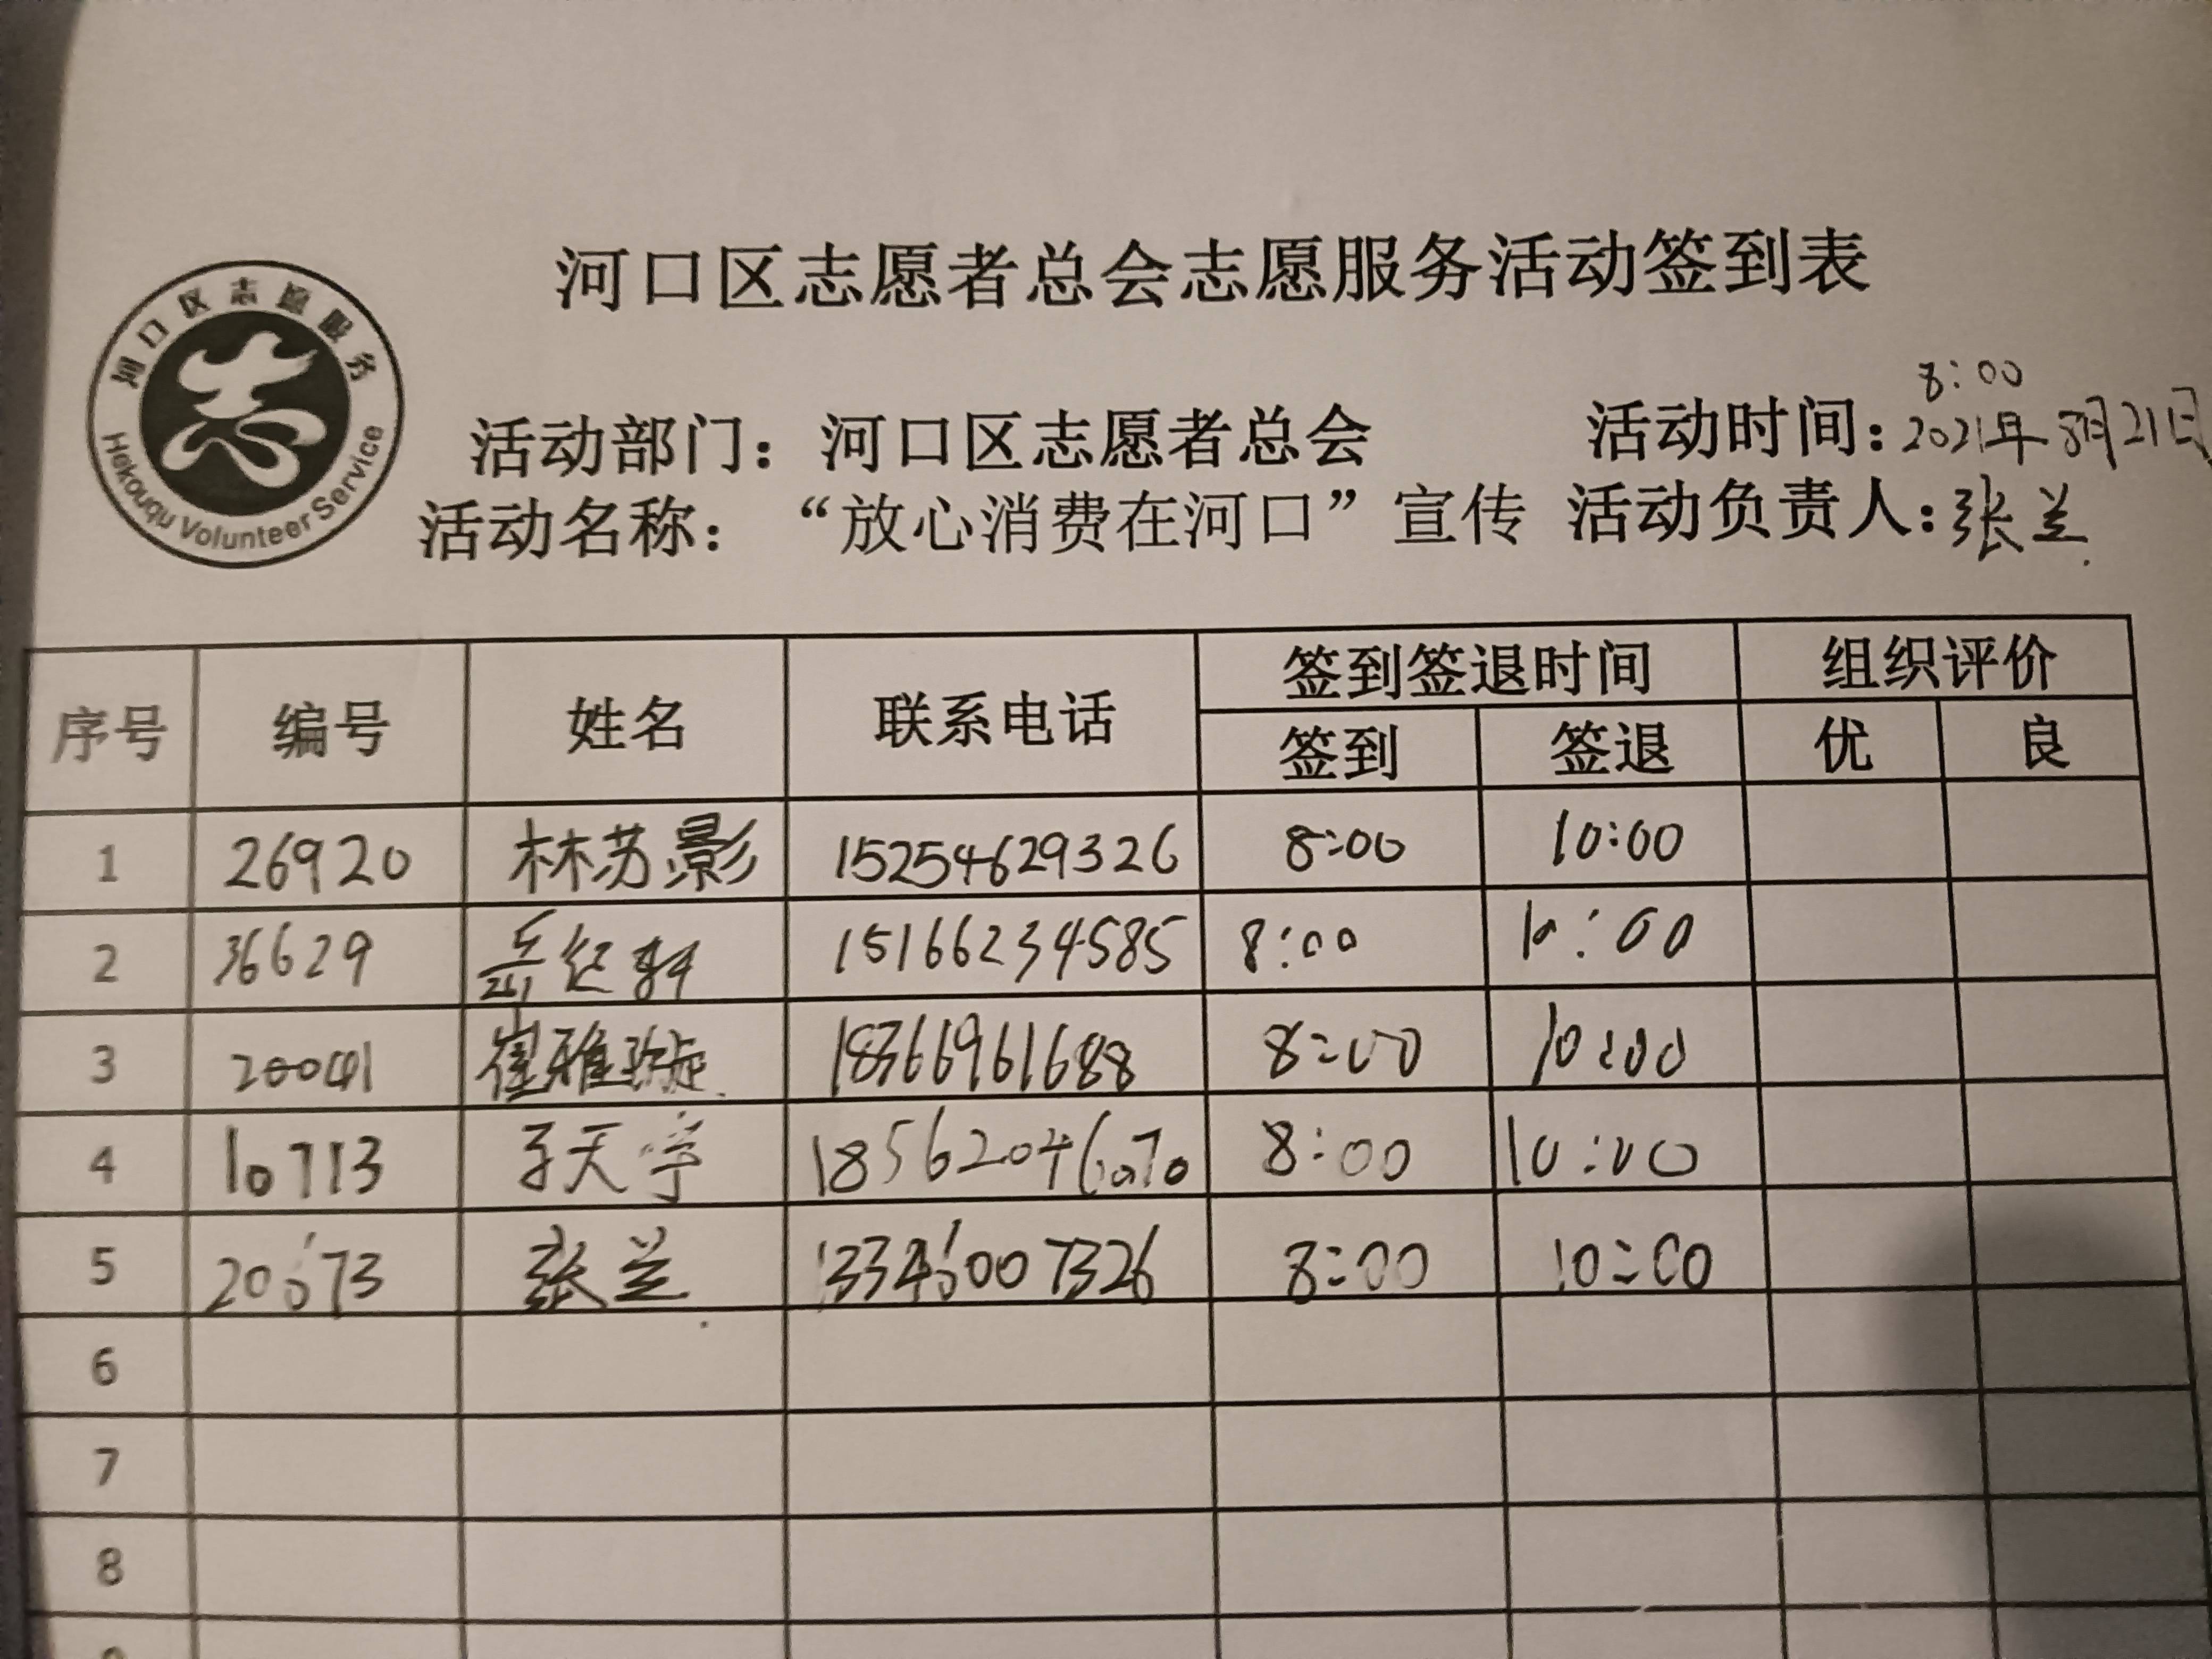 河口区志愿者总会志愿服务活动签到表
河口区志愿服务
Hekouqu Volunteer Service
8:00
活动部门：河口区志愿者总会 活动时间：2021年8月21日
活动名称：“放心消费在河口”宣传 活动负责人：张兰
序号 编号 姓名 联系电话 签到签退时间 组织评价
签到 签退 优 良
1 26920 林苏影 15254629326 8:00 10:00
2 36629 岳 15166234585 8:00 10:00
3 20041 崔雅璇 18366961688 8:00 10:00
4 10713 于天宇 18562046070 8:00 10:00
5 20673 张兰 13346007326 8:00 10:00
6
7
8